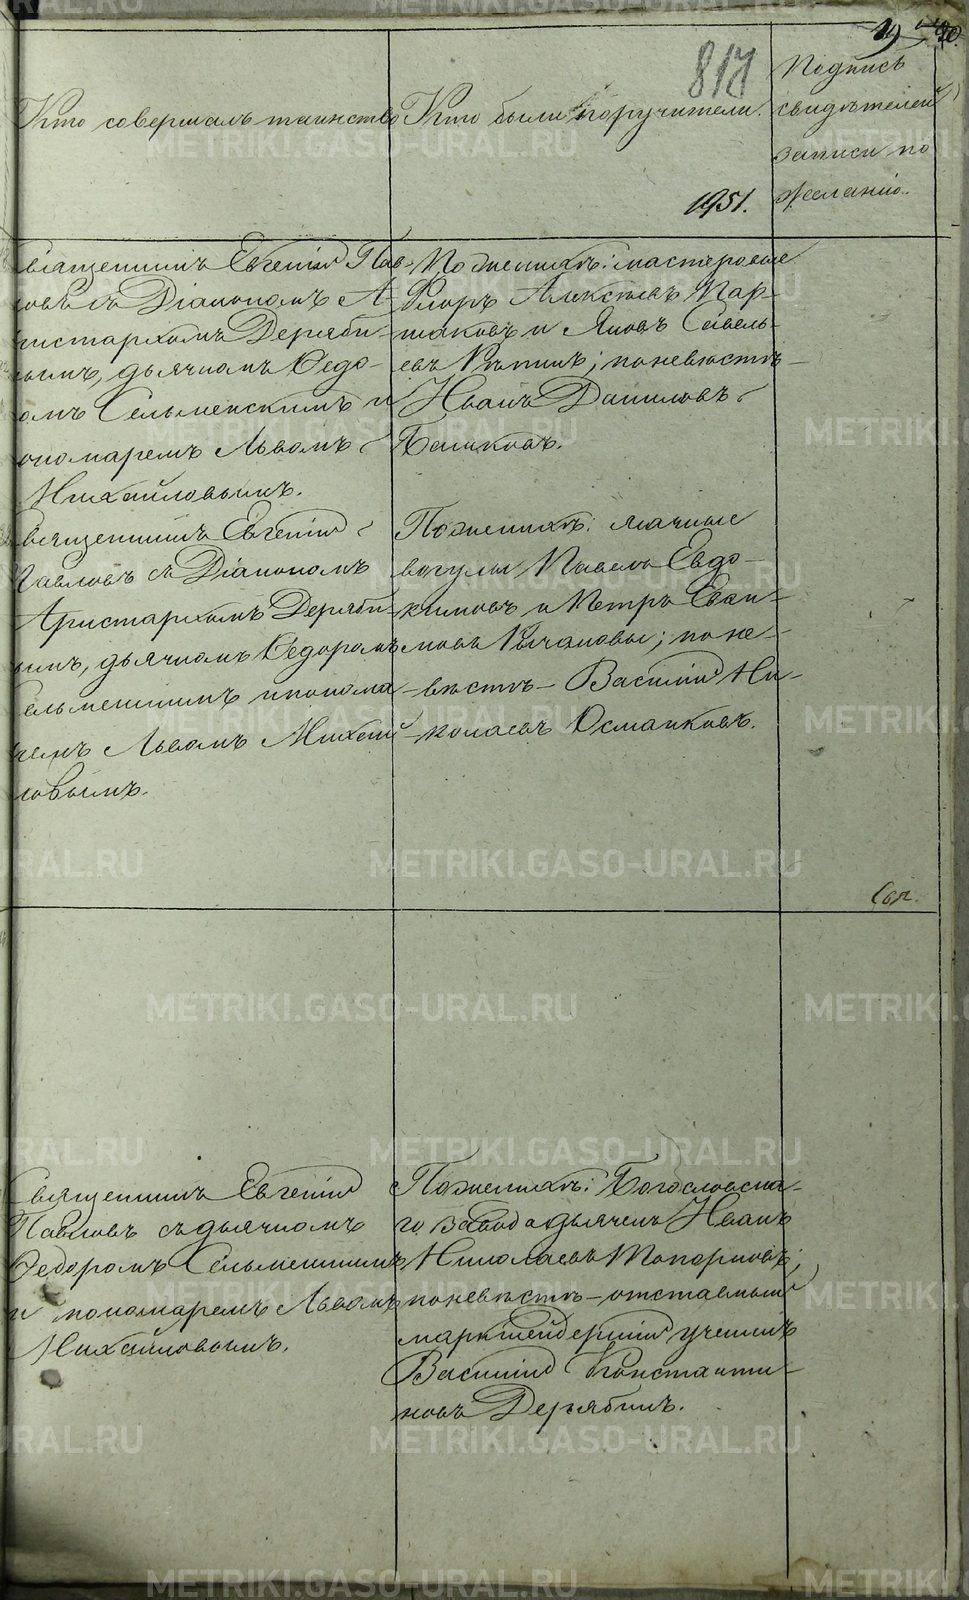 817
19
Кто совершалъ таинство
Кто были поручители.
1951.
Подпись
свидѣтелей
записи по
желанію.
Священникъ Евгеній Пав-
ловъ съ Діакономъ А-
ристархомъ Деряби-
нымъ, дьячкомъ Ѳедо-
ромъ Сельменскимъ и
пономаремъ Львомъ
Михайловымъ.
По женихѣ: мастеровые
Флоръ Алексѣевъ Пар-
шаковъ и Яковъ Савель-
евъ Рѣпинъ; по невѣстѣ
Иванъ Даниловъ
Башковъ.
Священникъ Евгеній
Павловъ съ Діакономъ
Аристархомъ Деряби-
нымъ, дьячкомъ Ѳедоромъ
Сельменскимъ и понома-
ремъ Львомъ Михай-
ловымъ.
По женихѣ: ясачные
вогулы Павелъ Евдо-
кимовъ и Петръ
по не-
вѣстѣ - Василій Ни-
колаевъ Османковъ.
Священникъ Евгеній
Павловъ съ дьячкомъ
Ѳедоромъ Сельменскимъ
и пономаремъ Львомъ
Михайловымъ.
По женихѣ: Богословска-
го завода дьячекъ Иванъ
Николаевъ Топорковъ;
по невѣстѣ - отставный
маркшейдерскій ученикъ
Василій Константи-
новъ Дерябинъ.
METRIKI.GASO-URAL.RU